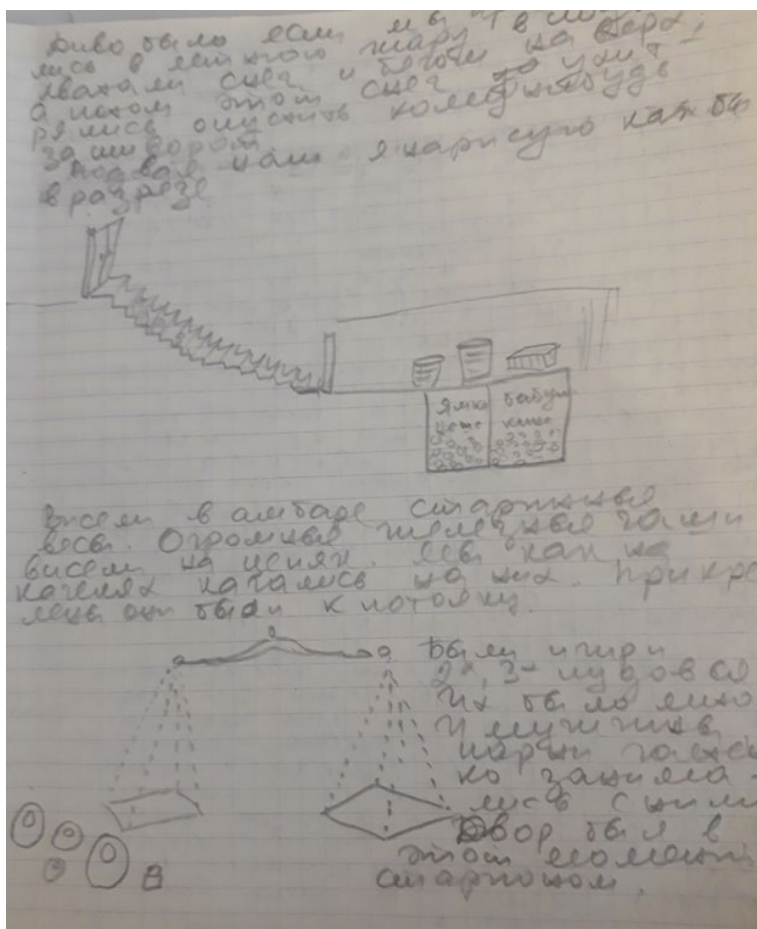 Диво было если мы в
лись в летнюю жару
хватали снег и бегом на верх,
а потом этот снег
рялись опустить кому нибудь
за шиворот
Подвал наш я нарисую как бы
в разрезе
Ямка наше
бабуш
Висели в амбаре старинные
весы. Огромные железные чаши
висели на цепях. Мы как на
качелях катались на них. Прикре
лены они были к потолку.
Были гири
2х, 3х пудовые
Их было мно
И мужики
парни
ко занима-
лись с ними
Двор был в
этот момент
стариком.